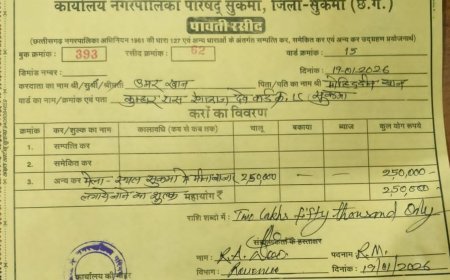 कार्यालय नगरपालिका परिषद् सुकमा, जिला-सुकमा (छ.ग.)
पावती रसीद
(छत्तीसगढ़ नगरपालिका अधिनियम 1961 की धारा 127 एवं अन्य धाराओं के अंतर्गत सम्पत्ति कर, समेकित कर एवं अन्य कर उद्ग्रहण प्रयोजनार्थ)
बुक क्रमांक : 393 रसीद क्रमांक : 62 वार्ड क्रमांक : 15
डिमांड नम्बर : दिनांक : 19.01.2026
करदाता का नाम श्री/सुश्री/श्रीमती उमर खान पिता/पति का नाम श्री खान
वार्ड का नाम/क्रमांक एवं पता क्र. 15 सुकमा
करों का विवरण
क्रमांक कर/शुल्क का नाम कालावधि (कब से कब तक) चालू बकाया ब्याज कुल योग रूपये
1. सम्पत्ति कर
2. समेकित कर
3. अन्य कर मेला-स्थल सुकमा में मीनाबाजार 250,000 250,000
लगाये जाने का शुल्क महायोग 250,000
राशि शब्दों में : Two Lakhs fifty thousand Only
के हस्ताक्षर
नाम : R.A. पदनाम R.M.
कार्यालय विभाग : Revenue 19/01/2026